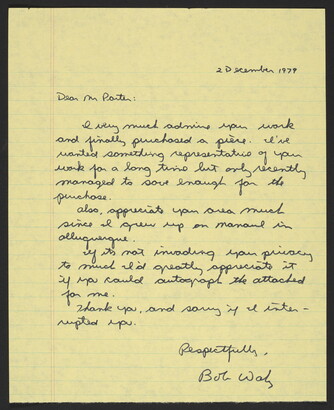 2 December 1979
Dear Mr Porter:
I very much admire your work
and finally purchased a piece. I've
wanted something representative of your
work for a long time but only recently
managed to save enough for the
purchase.
Also, appreciate your area much
since I grew up on manaul in
albuquerque.
If its not invading your privacy
to much I'd greatly appreciate it
if you could autograph the attached
for me.
Thank you, and sorry if I inter-
rupted you.
Respectfully,
Bob